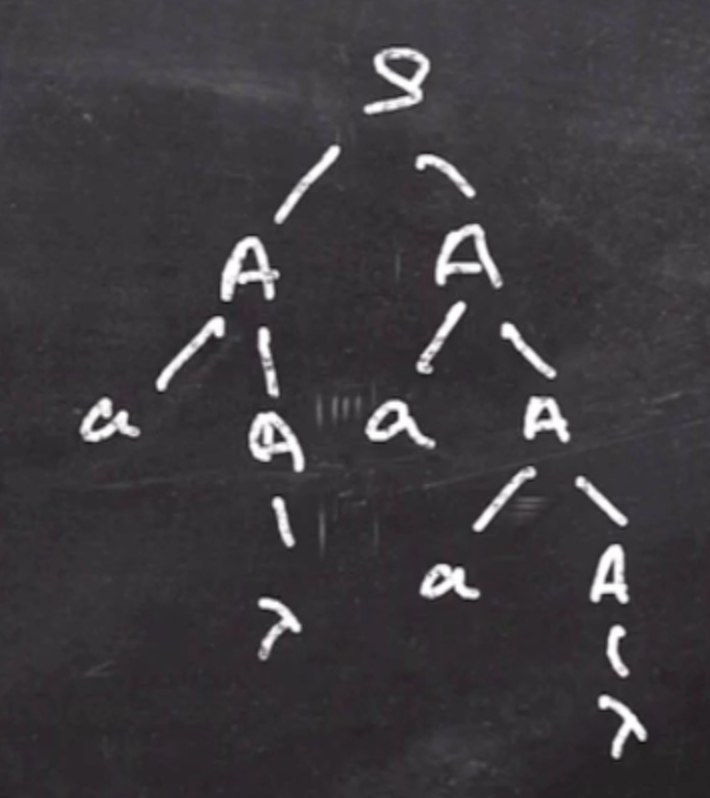 S
A A
a A a A
λ a A
λ